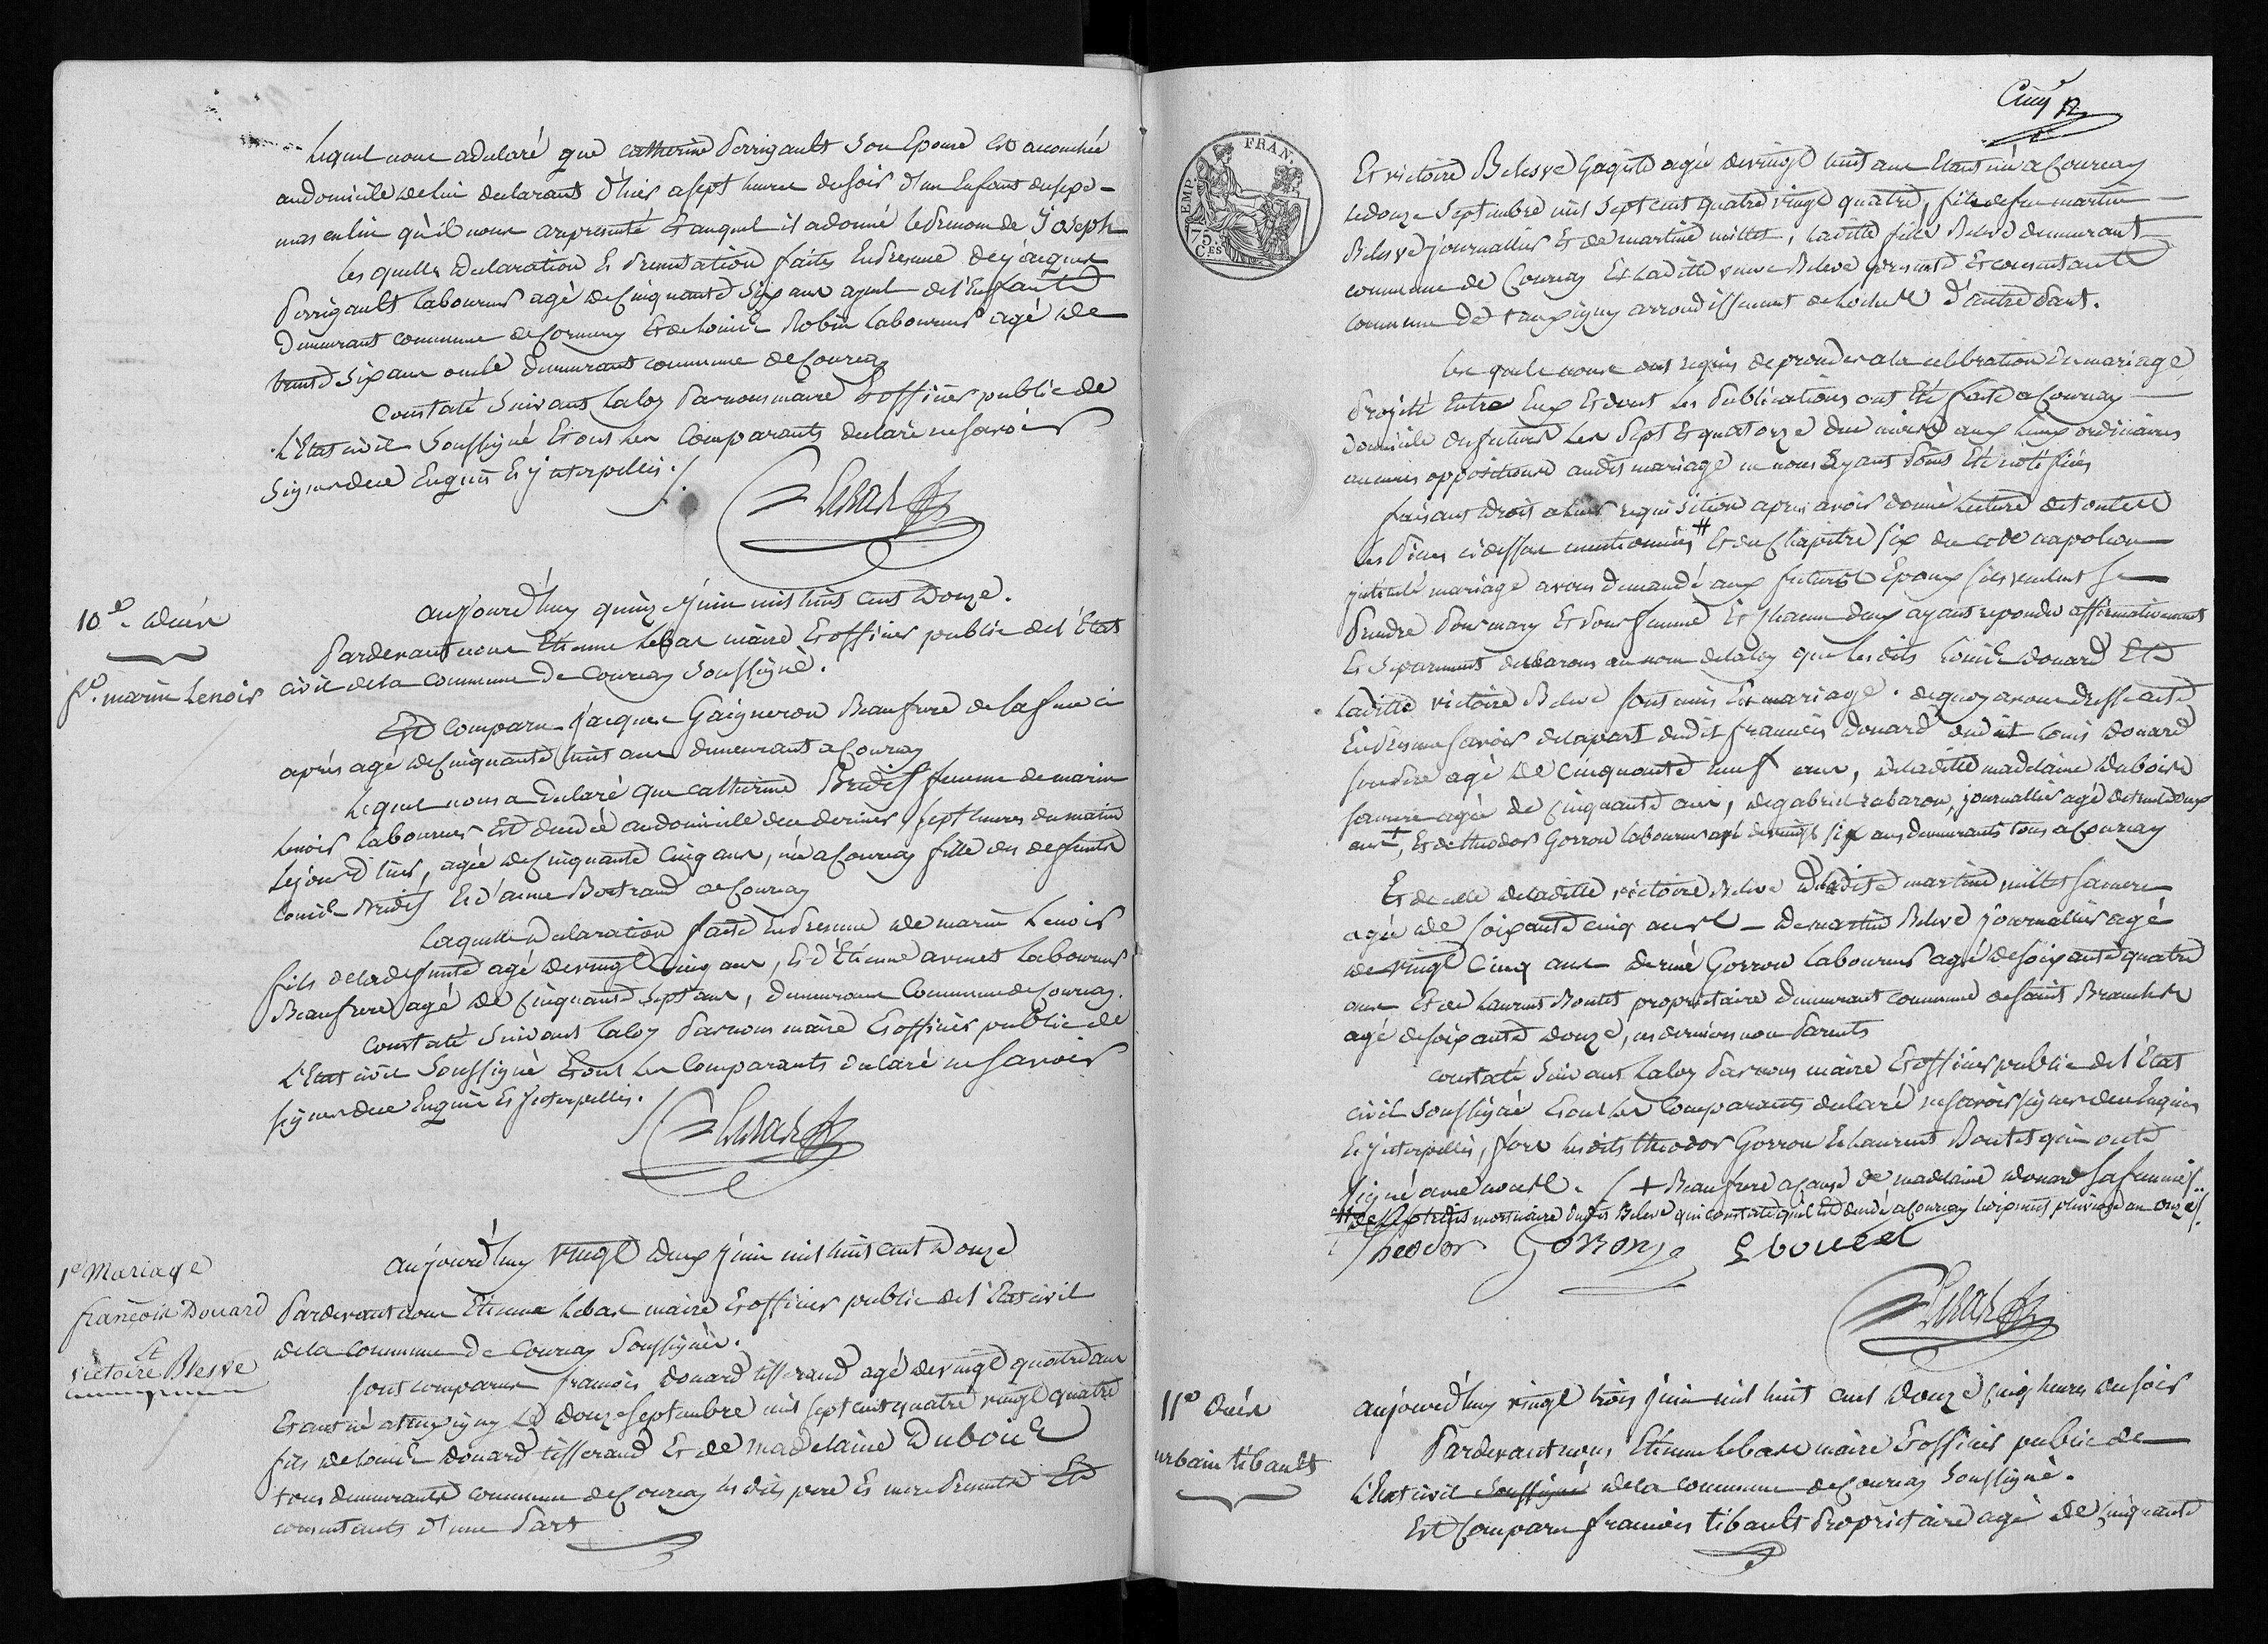 Lequel nous a declaré que catherine Perrigault Son Epouse Est accouchée
au domicile de lui declarant d'hier a Sept heures du Soir d'un Enfant du Sexe
masculin qu'il nous a représenté Et auquel il a donné le Prenom de Joseph
Les quelles declaration Et Presentation faites En Presence de jacques
Perrigault laboureur agé de Cinquante Six ans ayeul de l'Enfant
demeurant commune de Cormery Et de Louis Robin laboureur agé de
trente Six ans oncle demeurant commune de Courcay
Constaté Suivant La loy Par nous maire Et officier public de
L'Etat civil Soussigné Et ont les Comparants declaré ne Savoir
Signer de ce Enquis Et interpellés./.
Lebas
10e Decès
fe marin Lenoir
aujourd'huy quinze juin mil huit cent Douze.
Pardevant nous Etienne Lebas maire Et officier public de l'Etat
civil de la Commune de Courcay Soussigné.
Est Comparu jacques Gaigneron Beaufrere de la femme ci
après agé de Cinquante huit ans demeurant a Courcay
Lequel nous a declaré que catherine femme de marin
Lenoir laboureur Est decedée au domicile de ce dernier, Sept heures du matin
le jour d'hier, agée de Cinquante Cinq ans, née a Courcay fille des defunts
Louis Et d'anne Bertrand de Courcay
Laquelle declaration faite En Presence de marin Lenoir
fils de la defunte agé de vingt Cinq ans, Et d'Etienne laboureur
Beaufrere agé de Cinquante Sept ans, demeurans Commune de Courcay.
Constaté Suivant La loy Par nous maire Et officier public de
L'Etat civil Soussigné Et ont les Comparants declaré ne Savoir
Signer de ce Enquis Et interpellés.
Lebas
1e Mariage
françois Douard
Et
victoire Blesve
aujourd'huy vingt deux juin mil huit cent Douze
Pardevant nous Etienne Lebas maire Et officier public de l'Etat civil
de la Commune de Courcay Soussigné.
Sont comparus françois Douard tisserand agé de vingt quatre ans
Etant né a tauxigny Le douze Septembre mil Sept cent quatre vingt quatre
fils de Louis Douard tisserand Et de Madelaine Dubois
tous demeurants commune de Courcay Les dits pere Et mere Presents Et
consentants d'une Part
Cinq
TEMP. FRAN.
75 Ces
Et victoire Belesve agée de vingt huit ans Etant née a Courcay
le douze Septembre mil Sept cent quatre vingt quatre, fille de feu martin
Belesve journallier Et de martine millet, La ditte fille Belesve demeurant
commune de Courcay Et La ditte veuve Belesve presente Et consentante
commune de tauxigny arrondissement de Loches d'autre Part.
Les quels nous ont requis de proceder a la celebration du mariage
Projetté Entre Eux Et dont les Publications ont Eté faites a Courcay
domicile des futurs Les Sept Et quatorze du mois aux lieux ordinaires
aucunes oppositions au dit mariage ne nous ayant Point Eté notifiées
faisant droit a leur requisition apres avoir donné Lecture de toutes
les Pieces ci dessus mentionnées # Et du Chapitre Six du code napoleon
intitulé mariage avons demandé aux futurs Epoux s'ils veulent Se
Prendre Pour mary Et Pour femme Et chacun d'eux ayant repondu affirmativement
Et Separement declarons au nom de la loy que les dits Louis Douard Et
La ditte victoire Belesve Sont unis En mariage. de quoy avons dressé acte
En Presence Savoir de la part du dit françois Douard du dit Louis Douard
Son Pere agé de Cinquante neuf ans, de la ditte madelaine dubois
Sa mere agée de Cinquante ans, de gabriel rabaron, journallier agé de trente deux
ans +, Et de theodor Gorron laboureur agé de vingt Six ans demeurants tous a Courcay
Et de celle de la ditte victoire Belesve de la dite martine millet Sa mere
agée de Soixante cinq ans de martin Belesve journallier agé
de vingt Cinq ans de rené Gorron laboureur agé de Soixante quatre
ans Et de Laurent Boutet proprietaire demeurant commune de Saint Branchs
agé de Soixante douze, ces derniers non Parents
Constaté Suivant La loy Par nous maire Et officier public de l'Etat
civil Soussigné Et ont les Comparants declaré ne Savoir Signer de ce Enquis
Et interpellés, fors les dits theodor Gorron Et Laurent Boutet qui ont
Signé avec nous. (+ Beaufrere a cause de madelaine Douard Sa femme
# mortuaire du dit Belesve qui constate qu'il Est decedé a Courcay le pluviose an onze
Theodor Gorron L boutet
Lebas
11e Decès
urbain tibault
aujourd'huy vingt trois juin mil huit cent Douze Cinq heures du Soir
Pardevant nous Etienne Lebas maire Et officier public de
L'Etat civil Soussigné de la commune de Courcay Soussigné.
Est Comparu françois tibault Proprietaire agé de Cinquante